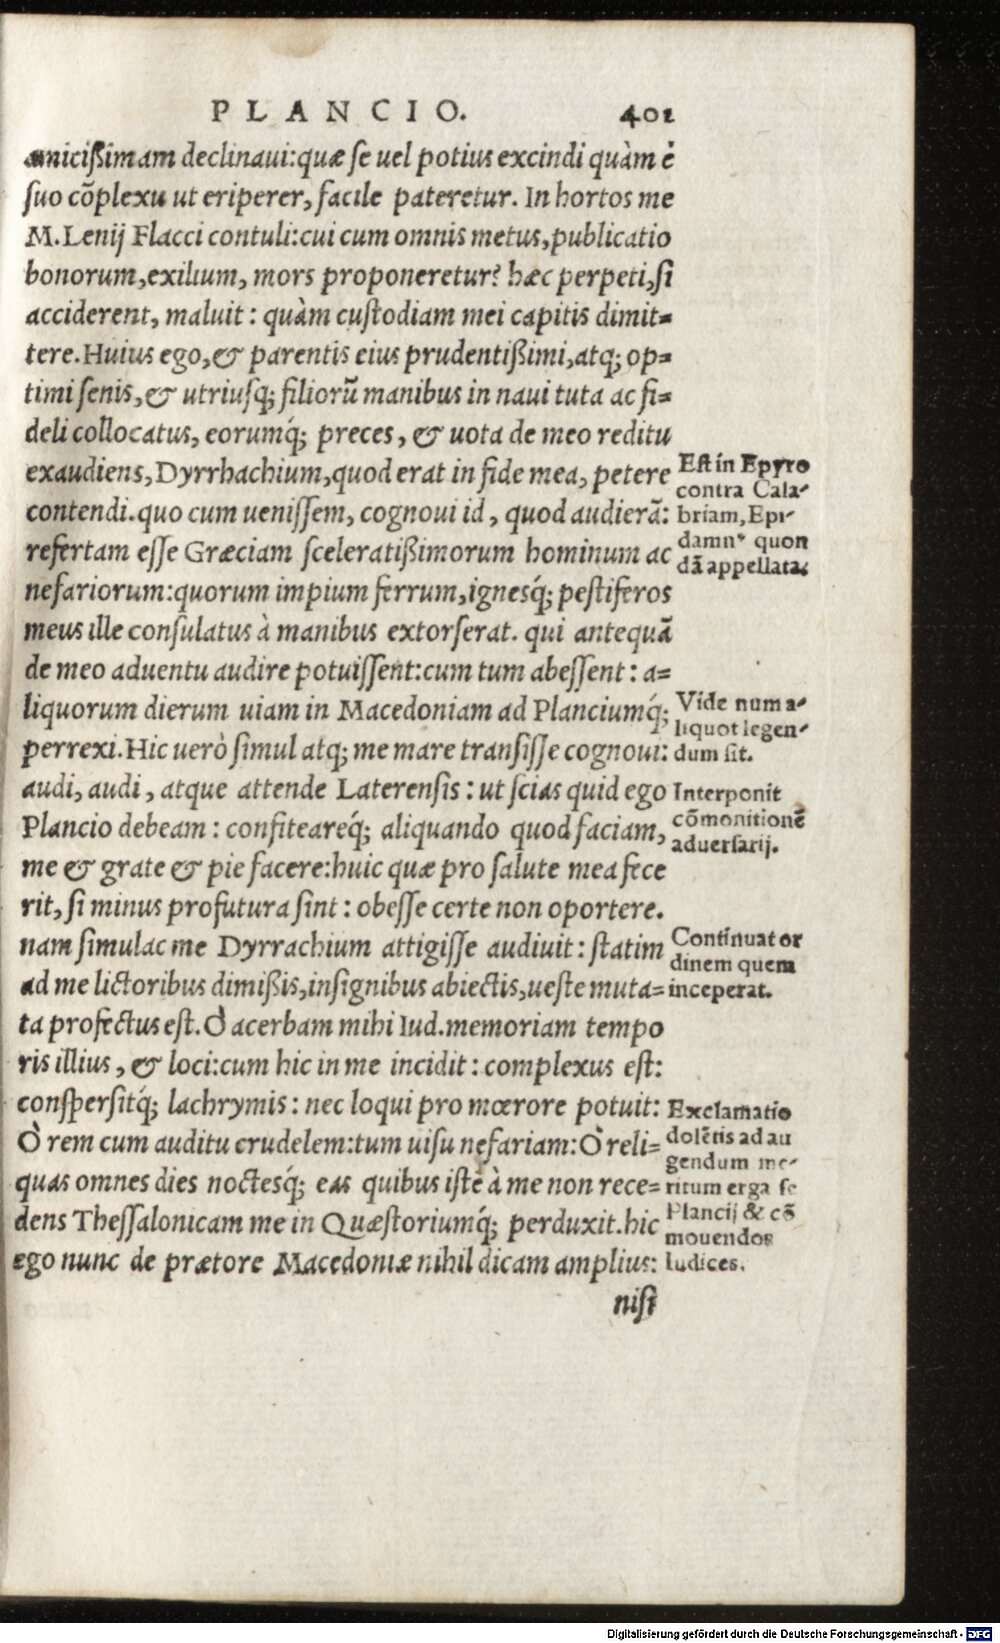 PLANCIO. 401
amicißimam declinaui:quæ se uel potius excindi quàm è
suo cõplexu ut eriperer, facile pateretur. In hortos me
M. Lenij Flacci contuli:cui cum omnis metus,publicatio
bonorum,exilium, mors proponeretur? hæc perpeti,si
acciderent, maluit : quàm custodiam mei capitis dimit=
tere.Huius ego,& parentis eius prudentißimi,atq; op=
timi senis,& utriusq; filiorũ manibus in naui tuta ac fi=
deli collocatus, eorumq́; preces, & uota de meo reditu
exaudiens,Dyrrhachium,quod erat in fide mea, petere
contendi.quo cum uenissem, cognoui id, quod audierã:
refertam esse Græciam sceleratißimorum hominum ac
nefariorum:quorum impium ferrum,ignesq́; pestiferos
meus ille consulatus à manibus extorserat. qui antequã
de meo aduentu audire potuissent:cum tum abessent: a=
liquorum dierum uiam in Macedoniam ad Planciumq́;
perrexi.Hic uerò simul atq; me mare transisse cognoui:
audi, audi, atque attende Laterensis : ut scias quid ego
Plancio debeam : confiteareq́; aliquando quod faciam,
me & grate & pie facere:huic quæ pro salute mea fece
rit, si minus profutura sint : obesse certe non oportere.
nam simulac me Dyrrachium attigisse audiuit: statim
ad me lictoribus dimißis,insignibus abiectis,ueste muta=
ta profectus est.Ò acerbam mihi Iud.memoriam tempo
ris illius, & loci:cum hic in me incidit : complexus est:
conspersitq́; lachrymis : nec loqui pro mœrore potuit:
Ò rem cum auditu crudelem:tum uisu nefariam:Ò reli=
quas omnes dies noctesq́; eas quibus iste à me non rece=
dens Thessalonicam me in Quæstoriumq́; perduxit.hic
ego nunc de prætore Macedoniæ nihil dicam amplius:
nisi
Est in Epyro
contra Cala-
briam, Epi-
damnꝰ quon
dã appellatas
Vide num a-
liquot legen-
dum sit.
Interponit
cõmonitionẽ
aduersarij.
Continuat or
dinem quem
inceperat.
Exclamatio
dolẽtis ad au
gendum me-
ritum erga se
Plancij & cõ
mouendos
Iudices.
Digitalisierung gefördert durch die Deutsche Forschungsgemeinschaft - DFG